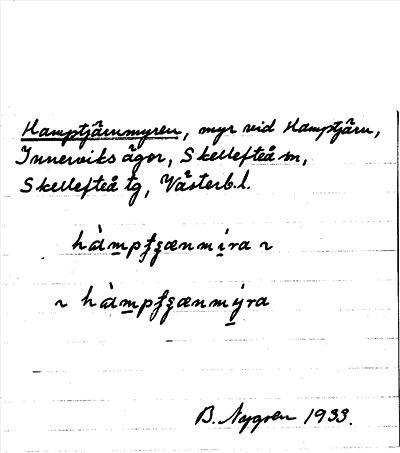 Hamptjärnmyren, myr vid Hamptjärn,
Innerviks ägor, Skellefteå sn,
Skellefteå tg, Västerb. l.
~
~
B. Nygren 1933.